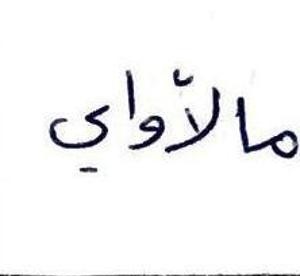 مالأواي